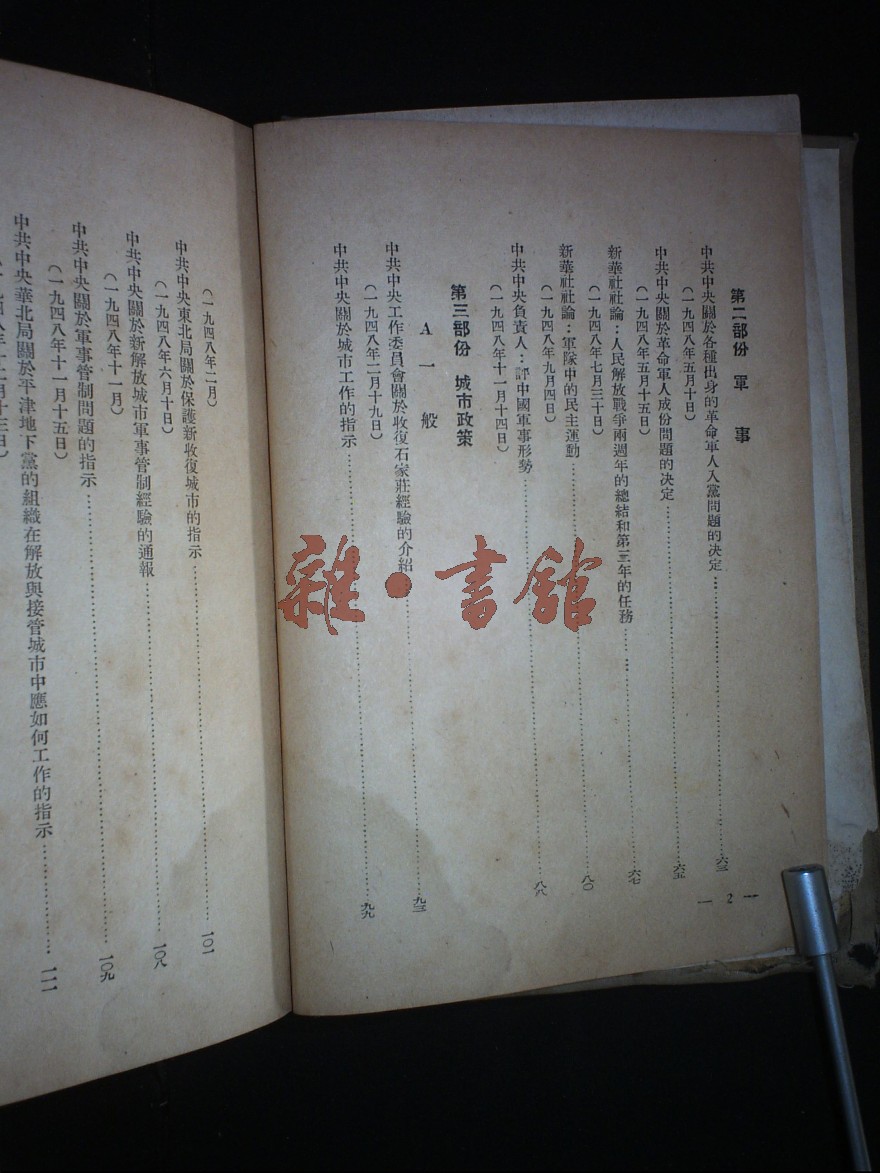 第二部份 軍事
中共中央關於各種出身的革命軍人入黨問題的决定……六三
（一九四八年五月十日）
中共中央關於革命軍人成份問題的决定……六五
（一九四八年五月十五日）
新華社社論：人民解放戰爭兩週年的總結和第三年的任務……六七
（一九四八年七月三十日）
新華社社論：軍隊中的民主運動……八〇
（一九四八年九月四日）
中共中央負責人：評中國軍事形勢……八八
（一九四八年十一月十四日）
第三部份 城市政策
A 一般
中共中央工作委員會關於收復石家莊經驗的介紹……九三
（一九四八年二月十九日）
中共中央關於城市工作的指示……九九
— 2 —
（一九四八年二月）……一〇一
中共中央東北局關於保護新收復城市的指示
（一九四八年六月十日）
中共中央關於新解放城市軍事管制經驗的通報……一〇八
（一九四八年十一月）
中共中央關於軍事管制問題的指示……一〇九
（一九四八年十一月十五日）
中共中央華北局關於平津地下黨的組織在解放與接管城市中應如何工作的指示……一一一
雜·書館